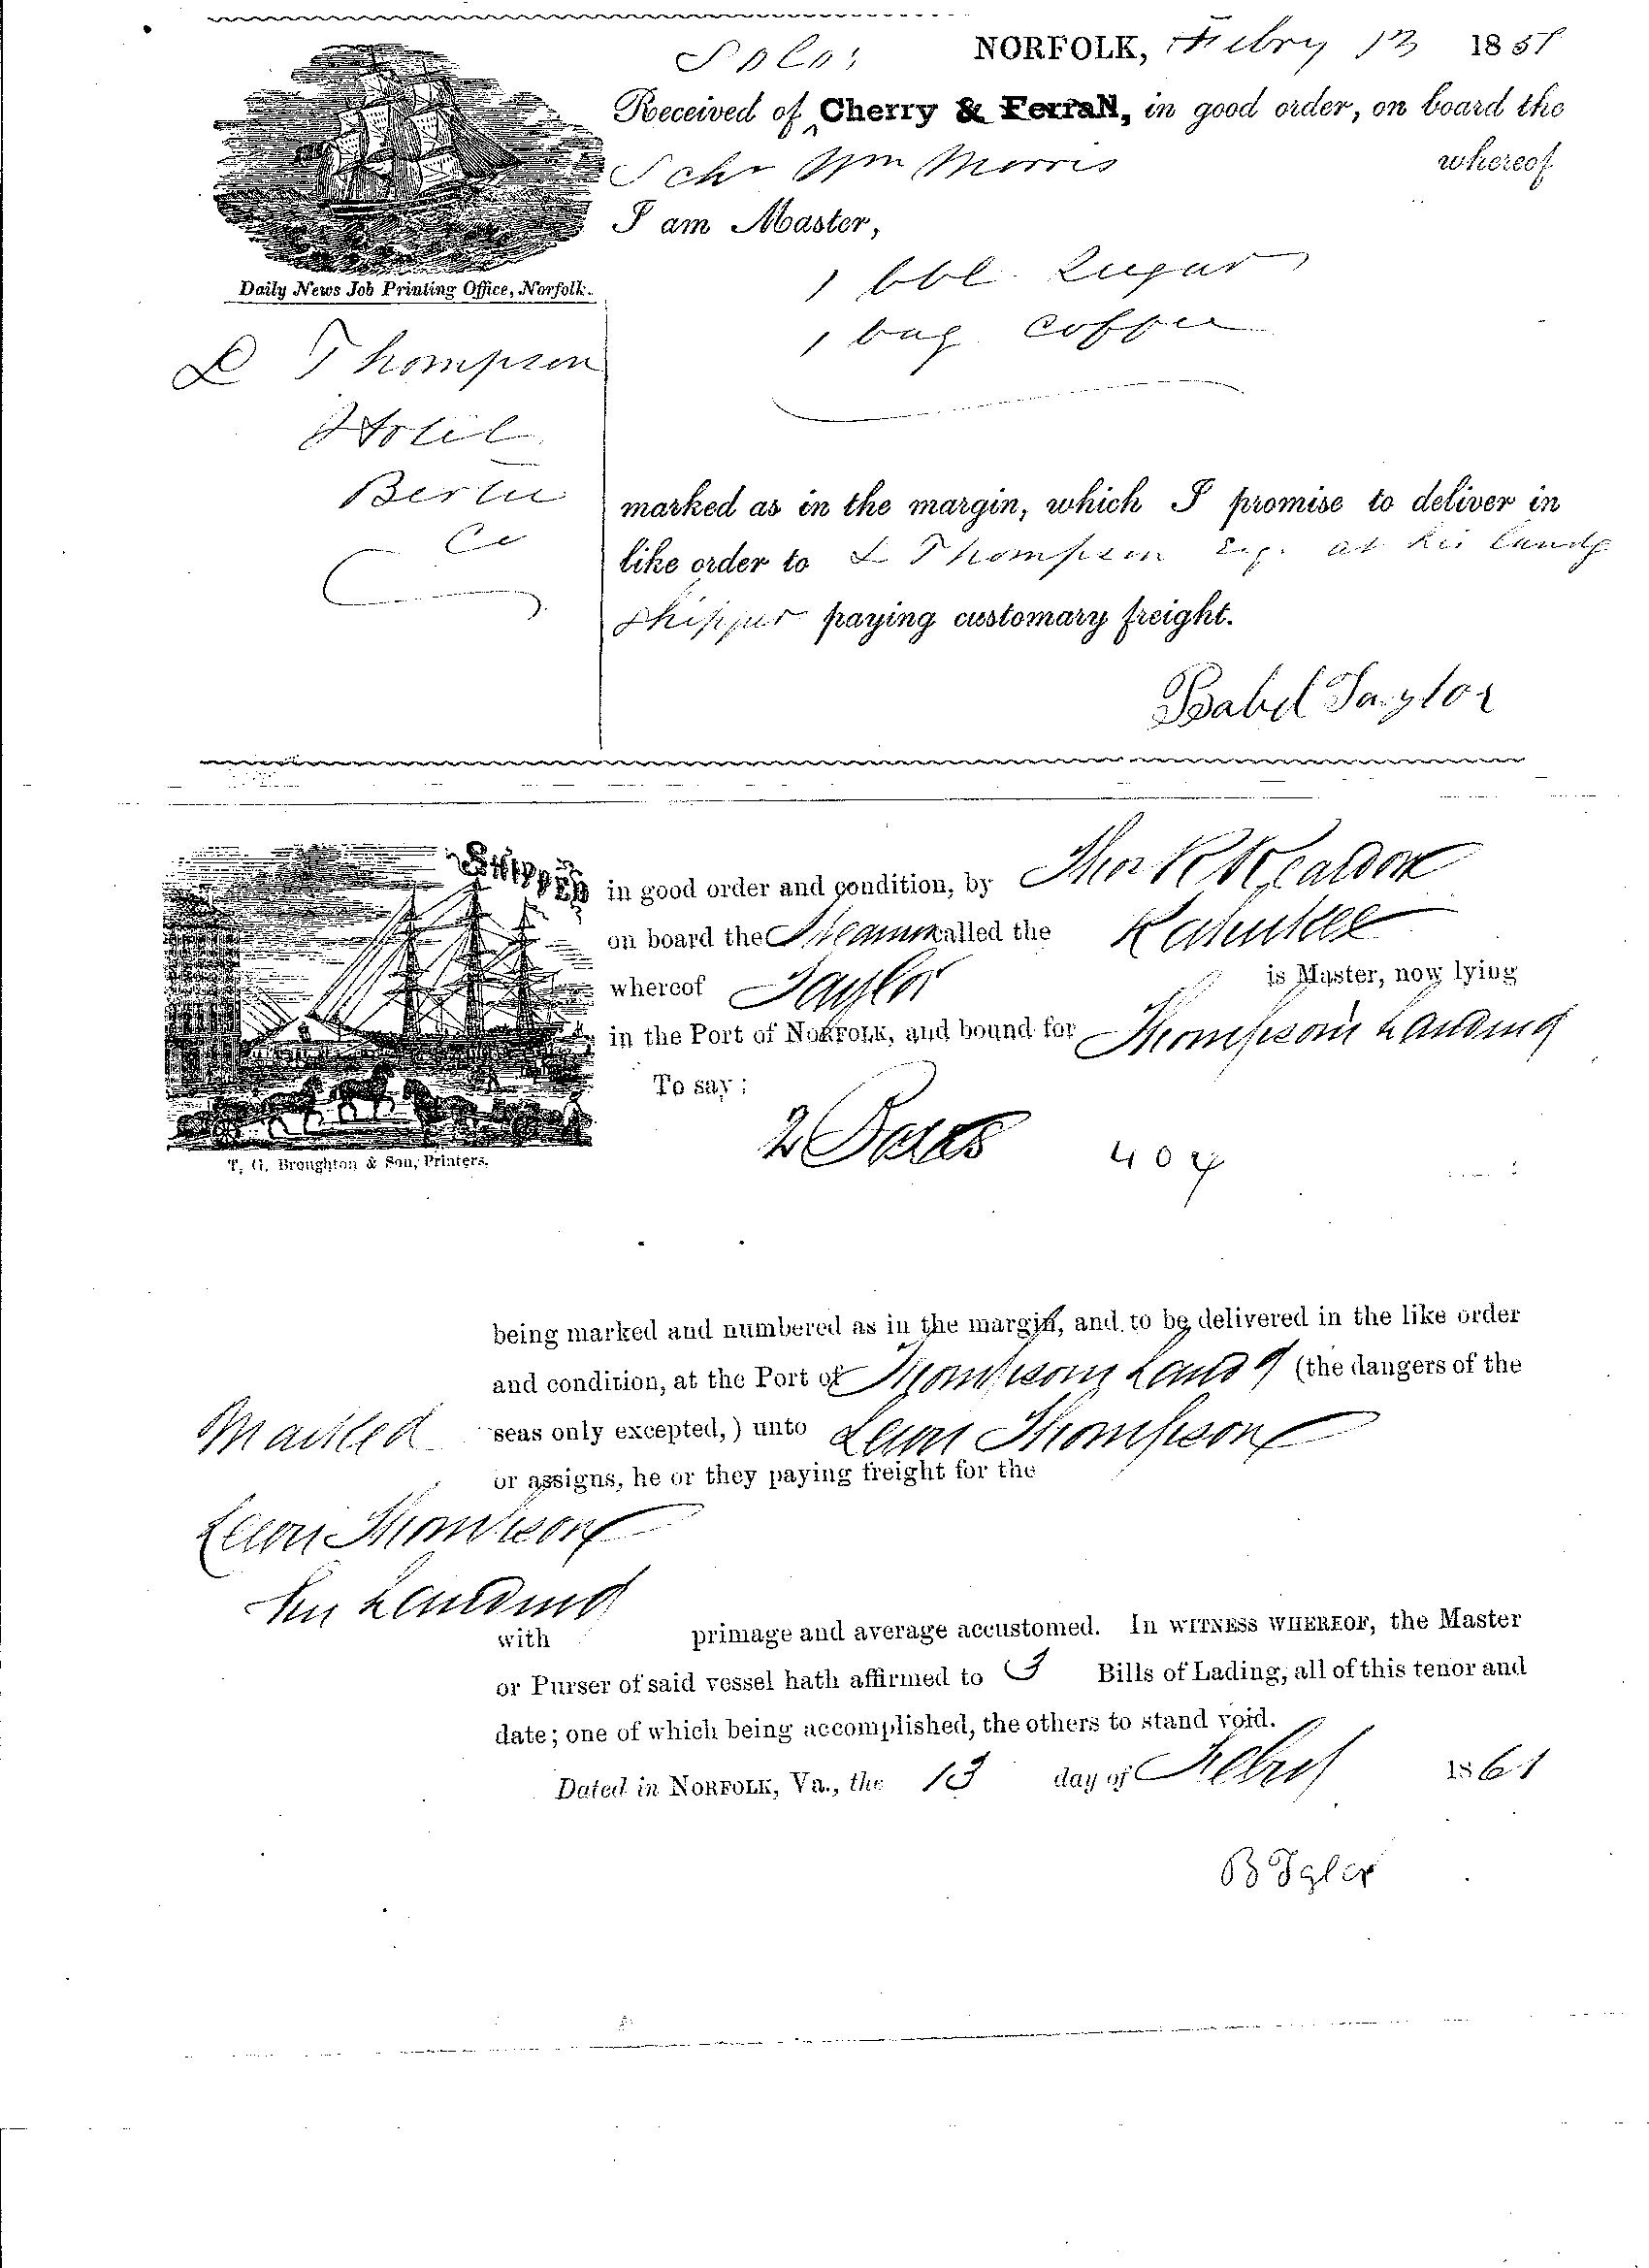 NORFOLK, Febry 13 1851
Received of Cherry & Ferrall, in good order, on board the
Schr Wm Morris whereof
I am Master,
1 bbl. Sugar
1 bag Coffee
Daily News Job Printing Office, Norfolk.
L Thompson
Hotel
Bertie
Co
marked as in the margin, which I promise to deliver in
like order to L Thompson Esq. at his landg
shipper paying customary freight.
Taylor
Shipped in good order and condition, by Thos R
on board the Steamr called the
whereof Taylor is Master, now lying
in the Port of NORFOLK, and bound for Thompson Landing
To say:
2
T. G. Broughton & Son, Printers.
being marked and numbered as in the margin, and to be delivered in the like order
and condition, at the Port of Thompsons Landg (the dangers of the
Marked
seas only excepted,) unto Lewis Thompson
or assigns, he or they paying freight for the
Lewis Thompson
Landing
with primage and average accustomed. IN WITNESS WHEREOF, the Master
or Purser of said vessel hath affirmed to 3 Bills of Lading, all of this tenor and
date; one of which being accomplished, the others to stand void.
Dated in NORFOLK, Va., the 13 day of Febry 1861